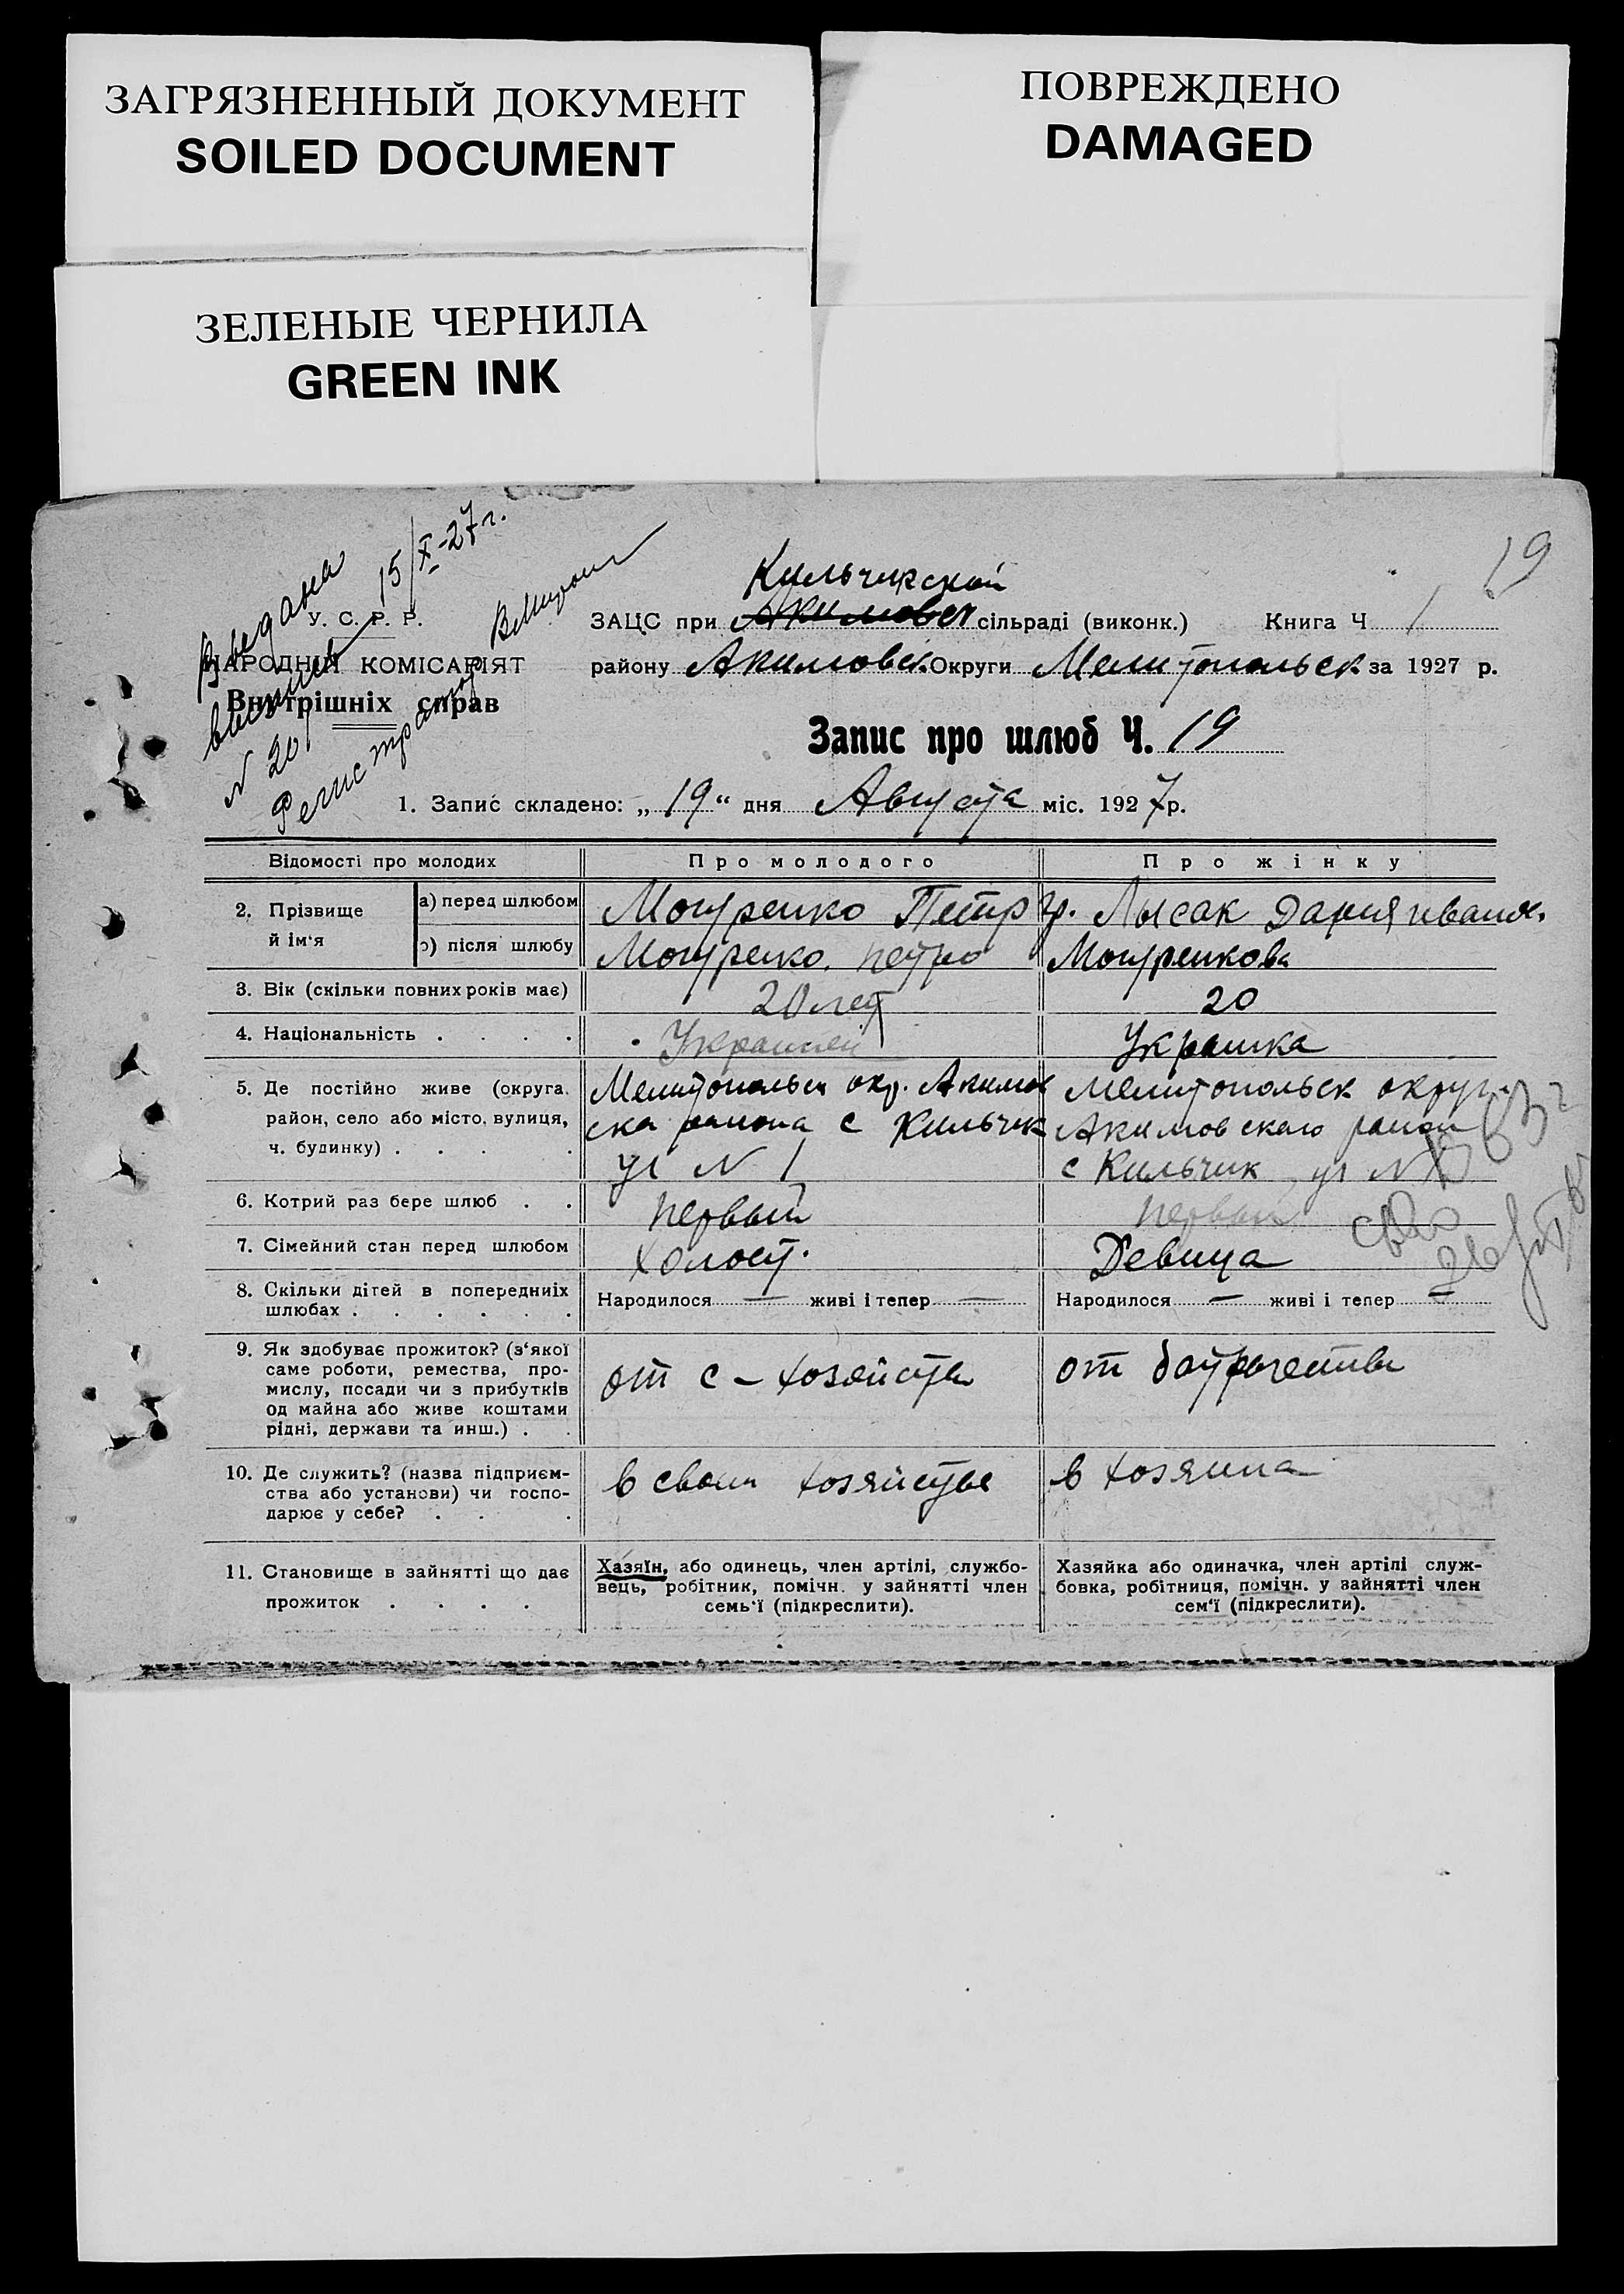 ЗАГРЯЗНЕННЫЙ ДОКУМЕНТ
SOILED DOCUMENT
ПОВРЕЖДЕНО
DAMAGED
ЗЕЛЕНЫЕ ЧЕРНИЛА
GREEN INK
19
15/X-27 г.
N 20
У. С. Р. Р.
НАРОДНИЙ КОМІСАРІЯТ
Внутрішніх справ
Кильчикской
ЗАЦС при Акимовск сільраді (виконк.) Книга Ч 1
району Акимовск. Округи Мелитопольск за 1927 р.
Запис про шлюб Ч. 19
1. Запис складено: „ 19 “ дня Августа міс. 1927 р.
Відомості про молодих Про молодого Про жінку
2. Прізвище й ім‘я а) перед шлюбом Могуренко Петр гр. Лысак Дария иванов.
б) після шлюбу Могуренко. петро Могуренкова
3. Вік (скільки повних років має) 20 лет 20
4. Національність . . . . Украинец Украинка
5. Де постійно живе (округа, Мелитопольск окр. Акимов Мелитопольск округи
район, село або місто, вулиця, ска района с Кильчик Акимовского район
ч. будинку) . . . . ул N 1 с Кильчик ул N
6. Котрий раз бере шлюб . . первый первый
7. Сімейний стан перед шлюбом холост. Девица
8. Скільки дітей в попередниіх шлюбах . . . . . . Народилося — живі і тепер — Народилося — живі і тепер —
9. Як здобуває прожиток? (з‘якої
саме роботи, ремества, про-
мислу, посади чи з прибутків
од майна або живе коштами
рідні, держави та инш.) . .
от с – хозяйства
от батрачества
10. Де служить? (назва підприєм-
ства або установи) чи госпо-
дарює у себе? . . .
в своем хозяйстве
в хозяина
11. Становище в зайнятті що дає
прожиток . . . .
Хазяїн, або одинець, член артілі, службо-
вець, робітник, помічн. у зайнятті член
семь‘ї (підкреслити).
Хазяйка або одиначка, член артілі служ-
бовка, робітниця, помічн. у зайнятті член
сем‘ї (підкреслити).